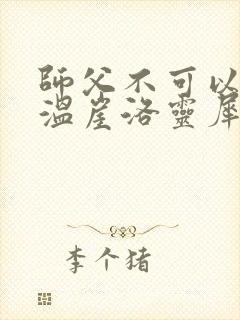 師父不可以
溫崖洛靈犀
李个猪